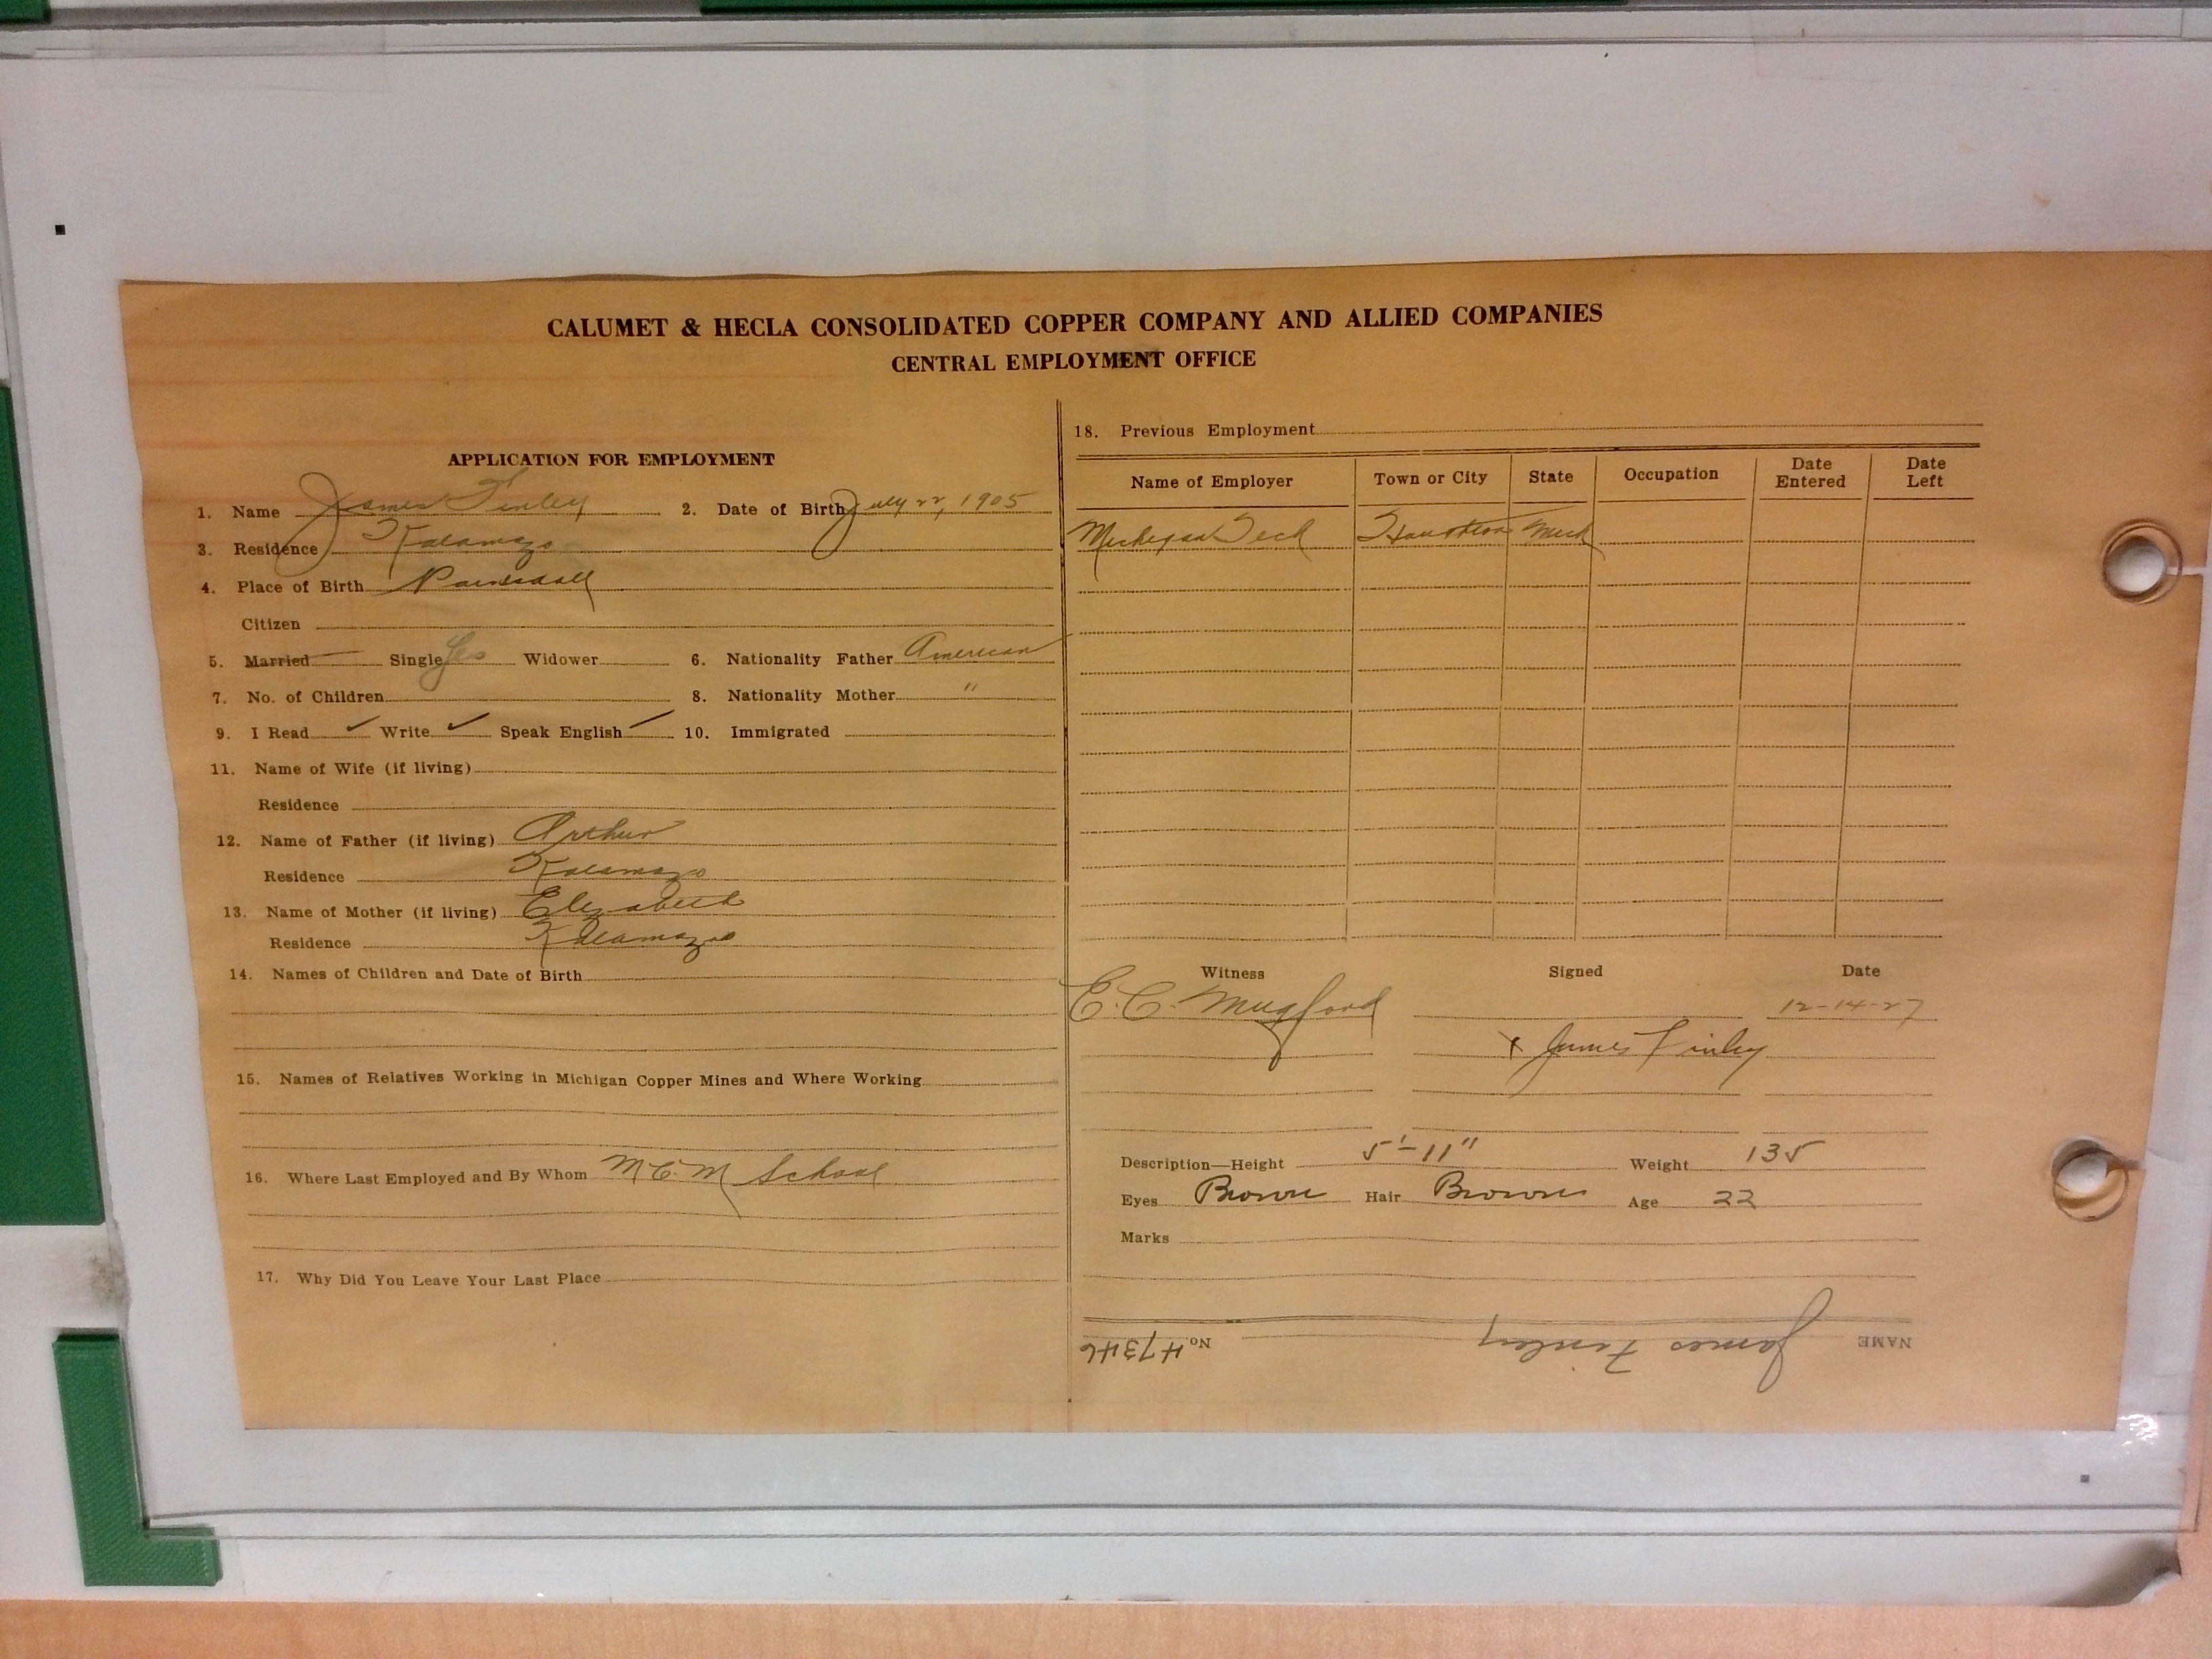 CALUMET & HECLA CONSOLIDATED COPPER COMPANY AND ALLIED COMPANIES
CENTRAL EMPLOYMENT OFFICE
APPLICATION FOR EMPLOYMENT
1. Name James Finley 2. Date of Birth July 22, 1905
3. Residence Kalamazo
4. Place of Birth Painesdall
Citizen
5. Married Single Yes Widower 6. Nationality Father American
7. No. of Children 8. Nationality Mother "
9. I Read ✓ Write ✓ Speak English ✓ 10. Immigrated
11. Name of Wife (if living)
Residence
12. Name of Father (if living) Arthur
Residence Kalamazo
13. Name of Mother (if living) Elizabeth
Residence Kalamazoo
14. Names of Children and Date of Birth
15. Names of Relatives Working in Michigan Copper Mines and Where Working
16. Where Last Employed and By Whom M.C.M School
17. Why Did You Leave Your Last Place
18. Previous Employment
Name of Employer Town or City State Occupation Date Entered Date Left
Michigan Tech Houghton Mich
Witness Signed Date
E. C. Mugford 12-14-27
x James Finley
Description—Height 5'-11" Weight 135
Eyes Brown Hair Brown Age 22
Marks
NAME James Finley No. 47346